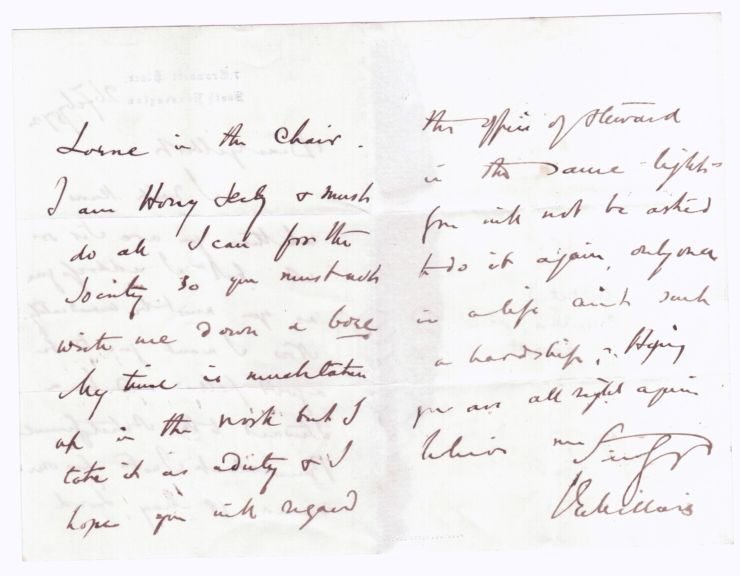 Lorne in the Chair.
I am Hony Secy & must
do all I can for the
Society so you must not
write me down a bore
My time is much taken
up in the work but I
take it as a duty & I
hope you will regard
the office of Steward
in the same light
you will not be asked
to do it again, only once
in a life aint such
a hardship. Hoping
you are all right again
believe me
JE Millais